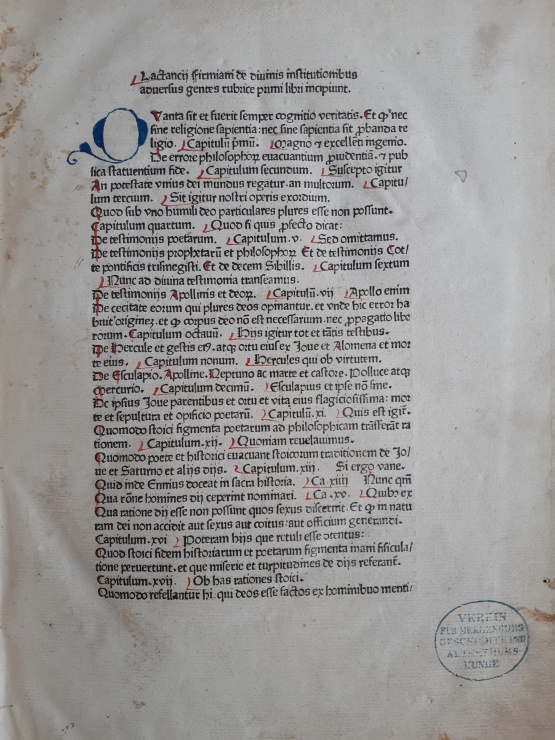 Lactancij firmiani de diuinis institutionibus
aduersus gentes rubrice primi libri incipiunt.
QVanta sit et fuerit semper cognitio veritatis. Et qꝫ nec
sine religione sapientia: nec sine sapientia sit ꝓbanda re
ligio. Capitulū pͥmū. Magno ⁊ excellēti ingenio.
De errore philosophoꝝ euacuantium prudentiā. ⁊ pub
lica statuentium fide. Capitulum secundum. Suscepto igitur
An potestate vnius dei mundus regatur. an multorum. Capitu/
lum tercium. Sit igitur nostri operis exordium.
Quod sub vno humili deo particulares plures esse non possunt.
Capitulum quartum. Quod si quis ꝓfecto dicat:
De testimonijs poetarum. Capitulum. v. Sed omittamus.
De testimonijs prophetarū et philosophoꝝ Et de testimonijs Cot/
te pontificis trismegisti. Et de decem Sibillis. Capitulum sextum
Nunc ad diuina testimonia transeamus.
De testimonijs Apollinis et deoꝝ. Capitulū. vij Apollo enim
De cecitate eorum qui plures deos opinantur. et vnde hic error ha
buit originez. et qꝫ corpus deo nō est necessarum. nec ꝓpagatio libe
rorum. Capitulum octauū. Hijs igitur tot et tātis testibus.
De Hercule et gestis eiꝰ. atqꝫ ortu eius ex Joue et Alomena et mor
te eius. Capitulum nonum. Hercules qui ob virtutem.
De Esculapio. Apolline. Neptuno ac marte et castore. Polluce atqꝫ
Mercurio. Capitulum decimū. Esculapius et ipse nō sine.
De ipsius Joue parentibus et ortu et vita eius flagiciosissima: mor
te et sepultura et opificio poetarū. Capitulū. xi. Quis est igiť.
Quomodo stoici figmenta poetarum ad philosophicam trāsferāt ra
tionem. Capitulum. xij. Quoniam reuelauimus.
Quomodo poete et historici euacuant stoicorum traditionem de Jo/
ue et Saturno et alijs dijs. Capitulum. xiij. Si ergo vane.
Quid inde Ennius doceat in sacra historia. Ca. xiiij Nunc qm̄
Qua rōne homines dij ceperint nominari. Ca. xv. Quibꝰ ex
Qua ratione dij esse non possunt quos sexus discernit. Et qꝫ in natu
ram dei non accidit aut sexus aut coitus: aut officium generandi.
Capitulum. xvi Poteram hijs que retuli esse ɔtentus:
Quod stoici fidem historiarum et poetarum figmenta inani fisicula/
tione peruertunt. et que miserie et turpitudines de dijs referant̄.
Capitulum. xvij. Ob has rationes stoici.
Quomodo refellantur hi. qui deos esse factos ex hominibus menti/
VEREIN
FÜR HENNEBERG.
GESCHICHTE UND
ALTERTHUMS-
KUNDE